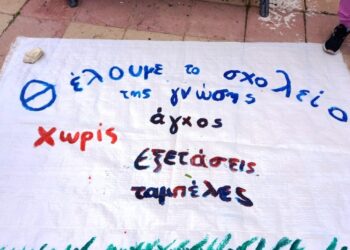 Θέλουμε το σχολείο
της γνώσης
άγχος
χωρίς
εξετάσεις
ταμπέλες